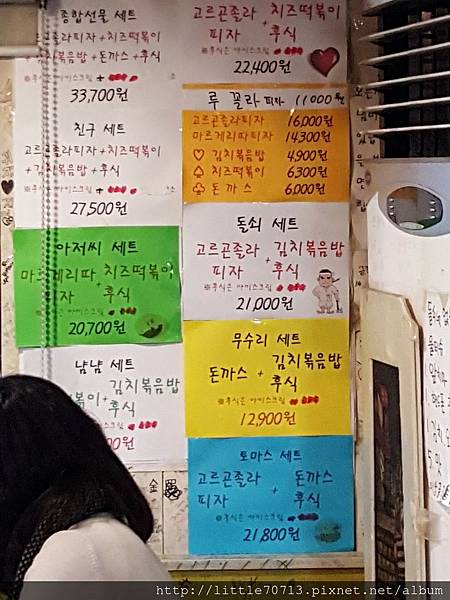 종합선물 세트
고르곤졸라피자 + 치즈떡볶이
김치볶음밥 + 돈까스 + 후식
※후식은 아이스크림 +
33,700원
친구 세트
고르곤졸라피자 + 치즈떡볶이
+ 김치볶음밥 + 후식
※후식은 아이스크림 +
27,500원
아저씨 세트
마르게리따 치즈떡볶이
피자 + 후식
※후식은 아이스크림 +
20,700원
냠냠 세트
볶이 + 김치볶음밥
후식
00원
고르곤졸라 치즈떡볶이
피자 + 후식
※후식은 아이스크림 +
22,400원
루꼴라 피자 11000원
고르곤졸라피자 16,000원
마르게리따피자 14,300원
♡ 김치볶음밥 4,900원
♤ 치즈떡볶이 6,300원
♧ 돈까스 6,000원
돌쇠 세트
고르곤졸라 김치볶음밥
피자 + 후식
※후식은 아이스크림 +
21,000원
무수리 세트
돈까스 + 김치볶음밥
후식
※후식은 아이스크림 +
12,900원
토마스 세트
고르곤졸라 돈까스
피자 + 후식
※후식은 아이스크림 +
21,800원
http://little70713.pixnet.net/album